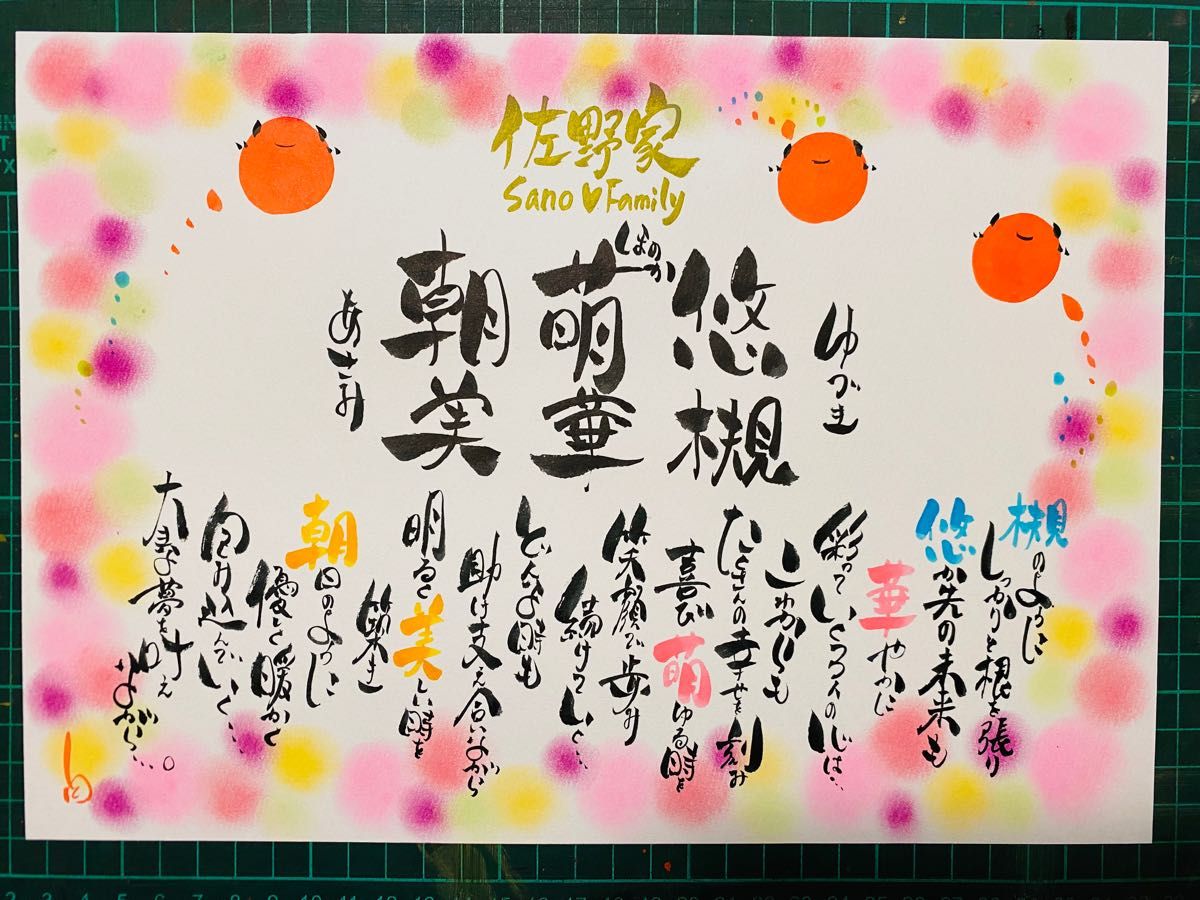 佐野家
Sano♥Family
ゆづき
悠槻
ほのか
萌華
朝美
あさみ
槻のように
しっかりと根を張り
悠か先の未来も
華やかに
彩っていく3人の心は…
これからも
たくさんの幸せを刻み
喜び萌ゆる時を
笑顔で歩み
続けていく…
どんな時も
助け支え合いながら
明るく美しい時を
築き
朝日のように
優しく暖かく
包み込んでいく…
大きな夢を叶え
ながら…。